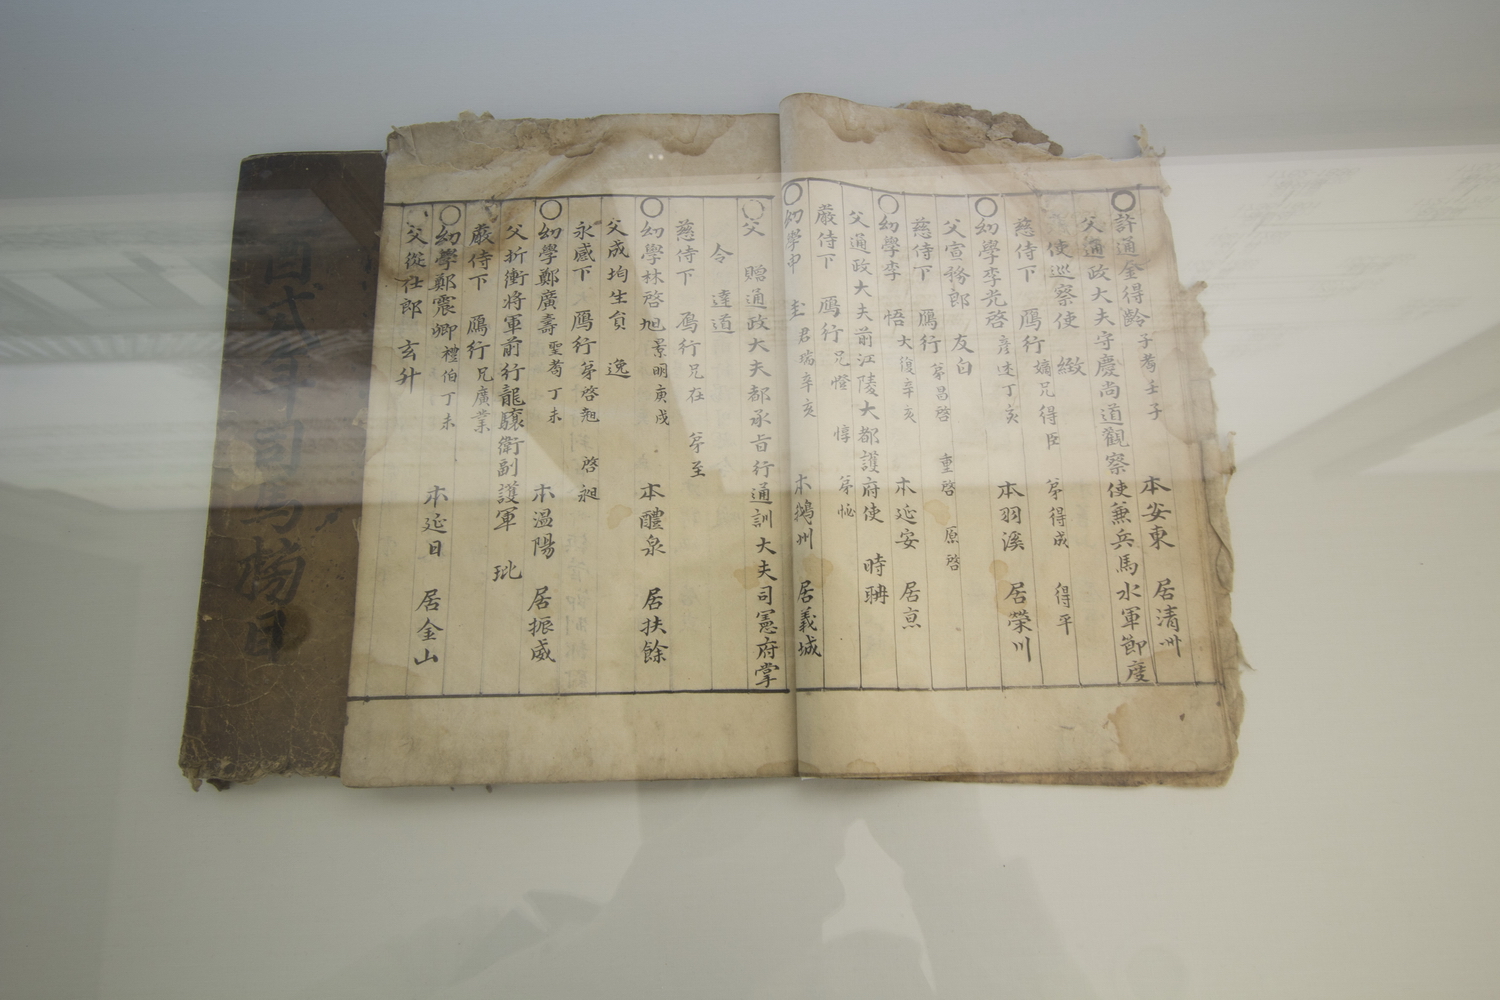 許通金得齡 子耉 壬子 本安東 居清州
父通政大夫守慶尚道觀察使兼兵馬水軍節度
使巡察使 緻
慈侍下 鴈行 嫡兄得臣 弟得成 得平
幼學李光啓 彦述 丁亥 本羽溪 居榮川
父宣務郎 友白
慈侍下 鴈行 弟昌啓 重啓 原啓
幼學李 悟 大復 辛亥 本延安 居京
父通政大夫前江陵大都護府使 時聃
嚴侍下 鴈行 兄憕 惇 弟怭
幼學申 圭 君瑞 辛亥 本鵝州 居義城
父 贈通政大夫都承旨行通訓大夫司憲府掌
令 達道
慈侍下 鴈行 兄在 弟至
幼學林啓旭 景明 庚戌 本醴泉 居扶餘
父成均生員 逸
永感下 鴈行 弟啓 啓昶
幼學鄭廣壽 聖耉 丁未 本温陽 居振威
父折衝將軍前行龍驤衛副護軍 玭
嚴侍下 鴈行 兄廣業
幼學鄭震卿 禮伯 丁未 本延日 居金山
父從仕郎 玄升
司馬榜目